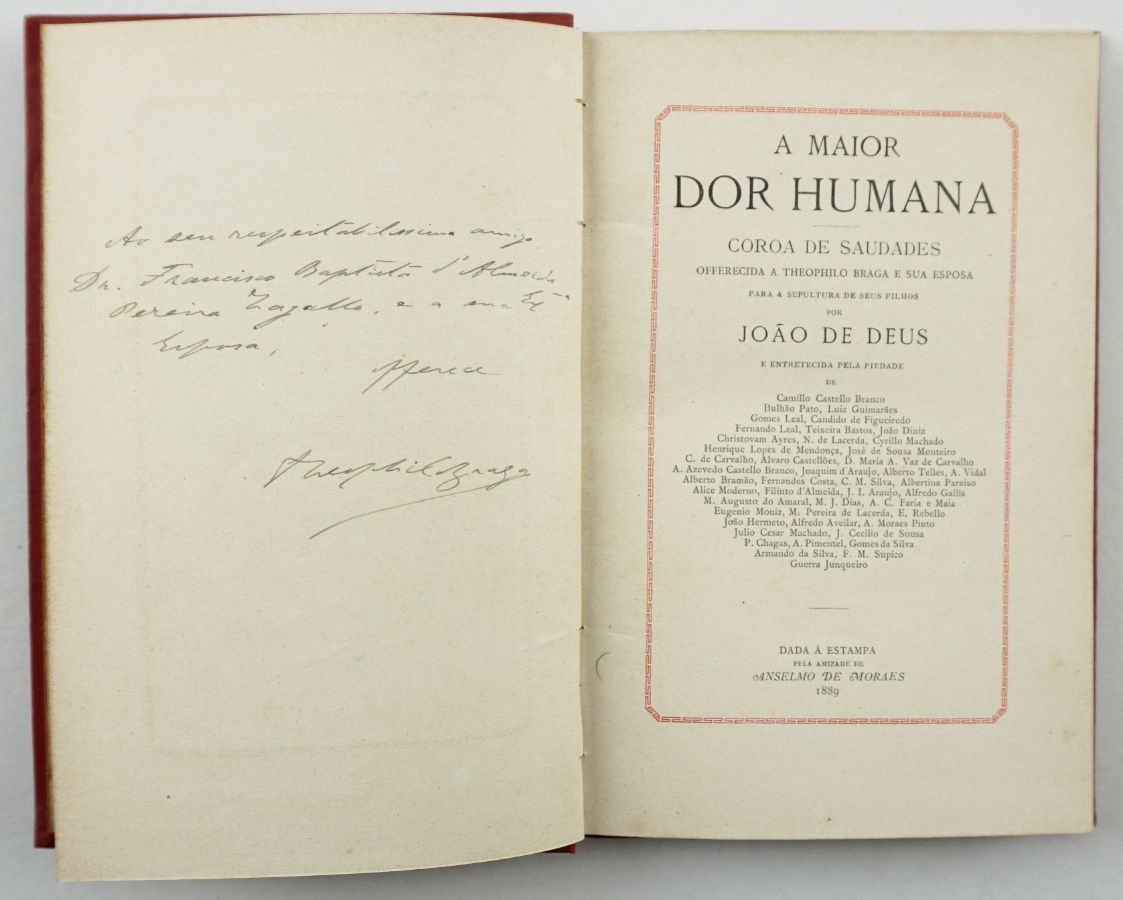 Ao seu respeitabilissimo amigo,
Dr. Francisco Baptista d'Almeida
Pereira Zagallo, e a sua Exᵐᵃ
Esposa,
Offerece
Theophilo Braga
A MAIOR
DOR HUMANA
COROA DE SAUDADES
OFFERECIDA A THEOPHILO BRAGA E SUA ESPOSA
PARA A SEPULTURA DE SEUS FILHOS
POR
JOÃO DE DEUS
E ENTRETECIDA PELA PIEDADE
DE
Camillo Castello Branco
Bulhão Pato, Luiz Guimarães
Gomes Leal, Candido de Figueiredo
Fernando Leal, Teixeira Bastos, João Diniz
Christovam Ayres, N. de Lacerda, Cyrillo Machado
Henrique Lopes de Mendonça, José de Sousa Monteiro
C. de Carvalho, Alvaro Castellões, D. Maria A. Vaz de Carvalho
A. Azevedo Castello Branco, Joaquim d'Araujo, Alberto Telles, A. Vidal
Alberto Bramão, Fernandes Costa, C. M. Silva, Albertina Paraiso
Alice Moderno, Filinto d'Almeida, J. I. Araujo, Alfredo Gallis
M. Augusto do Amaral, M. J. Dias, A. C. Faria e Maia
Eugenio Moniz, M. Pereira de Lacerda, E. Rebello
João Hermeto, Alfredo Avellar, A. Moraes Pinto
Julio Cesar Machado, J. Cecilio de Sousa
P. Chagas, A. Pimentel, Gomes da Silva
Armando da Silva, F. M. Supico
Guerra Junqueiro
DADA Á ESTAMPA
PELA AMIZADE DE
ANSELMO DE MORAES
1889